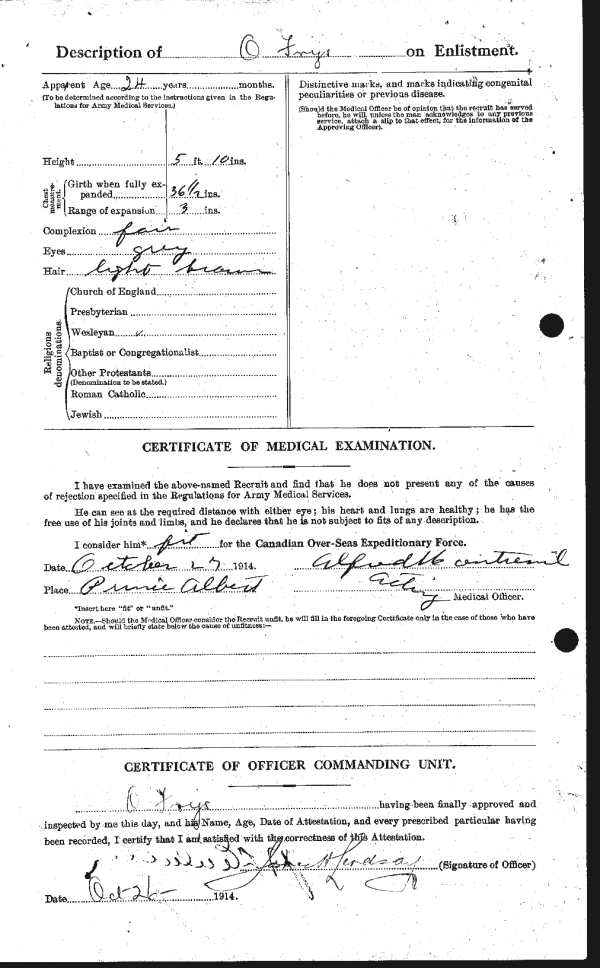 Description of O Frye on Enlistment.
Apparent Age 24 years months.
(To be determined according to the instructions given in the Regulations for Army Medical Services.)
Height 5 ft. 10 ins.
Chest measurement.
Girth when fully expanded 36 1/2 ins.
Range of expansion 3 ins.
Complexion fair
Eyes grey
Hair light brown
Religious denominations.
Church of England
Presbyterian
Wesleyan ✓
Baptist or Congregationalist
Other Protestants
(Denomination to be stated.)
Roman Catholic
Jewish
Distinctive marks, and marks indicating congenital
peculiarities or previous disease.
(Should the Medical Officer be of opinion that the recruit has served
before, he will, unless the man acknowledges to any previous
service, attach a slip to that effect, for the information of the
Approving Officer).
CERTIFICATE OF MEDICAL EXAMINATION.
I have examined the above-named Recruit and find that he does not present any of the causes
of rejection specified in the Regulations for Army Medical Services.
He can see at the required distance with either eye; his heart and lungs are healthy; he has the
free use of his joints and limbs, and he declares that he is not subject to fits of any description.
I consider him* fit for the Canadian Over-Seas Expeditionary Force.
Date October 27 1914. Alfred
Place Prince Albert Acting Medical Officer.
*Insert here "fit" or "unfit."
NOTE.—Should the Medical Officer consider the Recruit unfit, he will fill in the foregoing Certificate only in the case of those who have
been attested, and will briefly state below the cause of unfitness:—
CERTIFICATE OF OFFICER COMMANDING UNIT.
O Frye having been finally approved and
inspected by me this day, and his Name, Age, Date of Attestation, and every prescribed particular having
been recorded, I certify that I am satisfied with the correctness of this Attestation.
Lindsay (Signature of Officer)
Date Oct 26 1914.